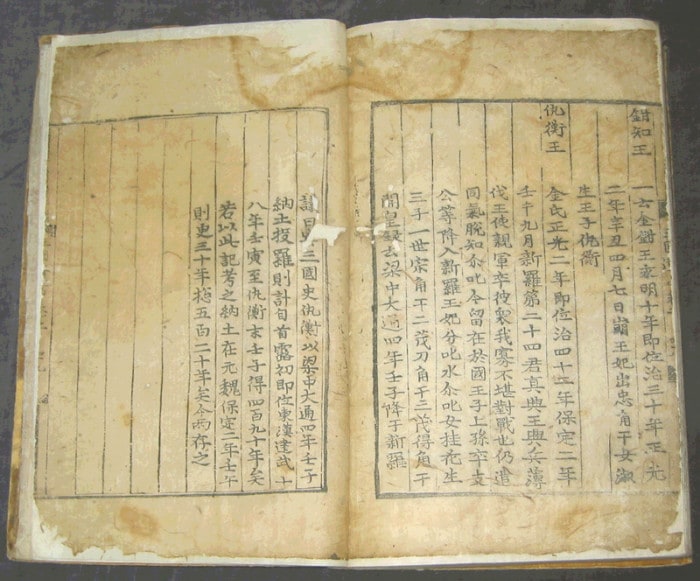 鉗知王 一云金鉗王永明十年即位治三十年正元
二年辛丑四月七日崩王妃出忠角干女淑
生王子仇衡
仇衡王 金氏正光二年即位治四十二年保定二年
壬午九月新羅第二十四君真興王興兵薄
伐王使親軍卒彼衆我寡不堪對戰也仍遣
同氣脫知尒叱今留在於國王子上孫卒支
公等降入新羅王妃分叱水尒叱女桂花生
三子一世宗角干二茂刀角干三茂得角干
開皇錄云梁中大通四年壬子降于新羅
議曰三國史仇衡以梁中大通四年壬子
納土投羅則計自首露初即位東漢建武十
八年壬寅至仇衡末壬子得四百九十年矣
若以此記考之納土在元魏保定二年壬午
則更三十年揔五百二十年矣今兩存之